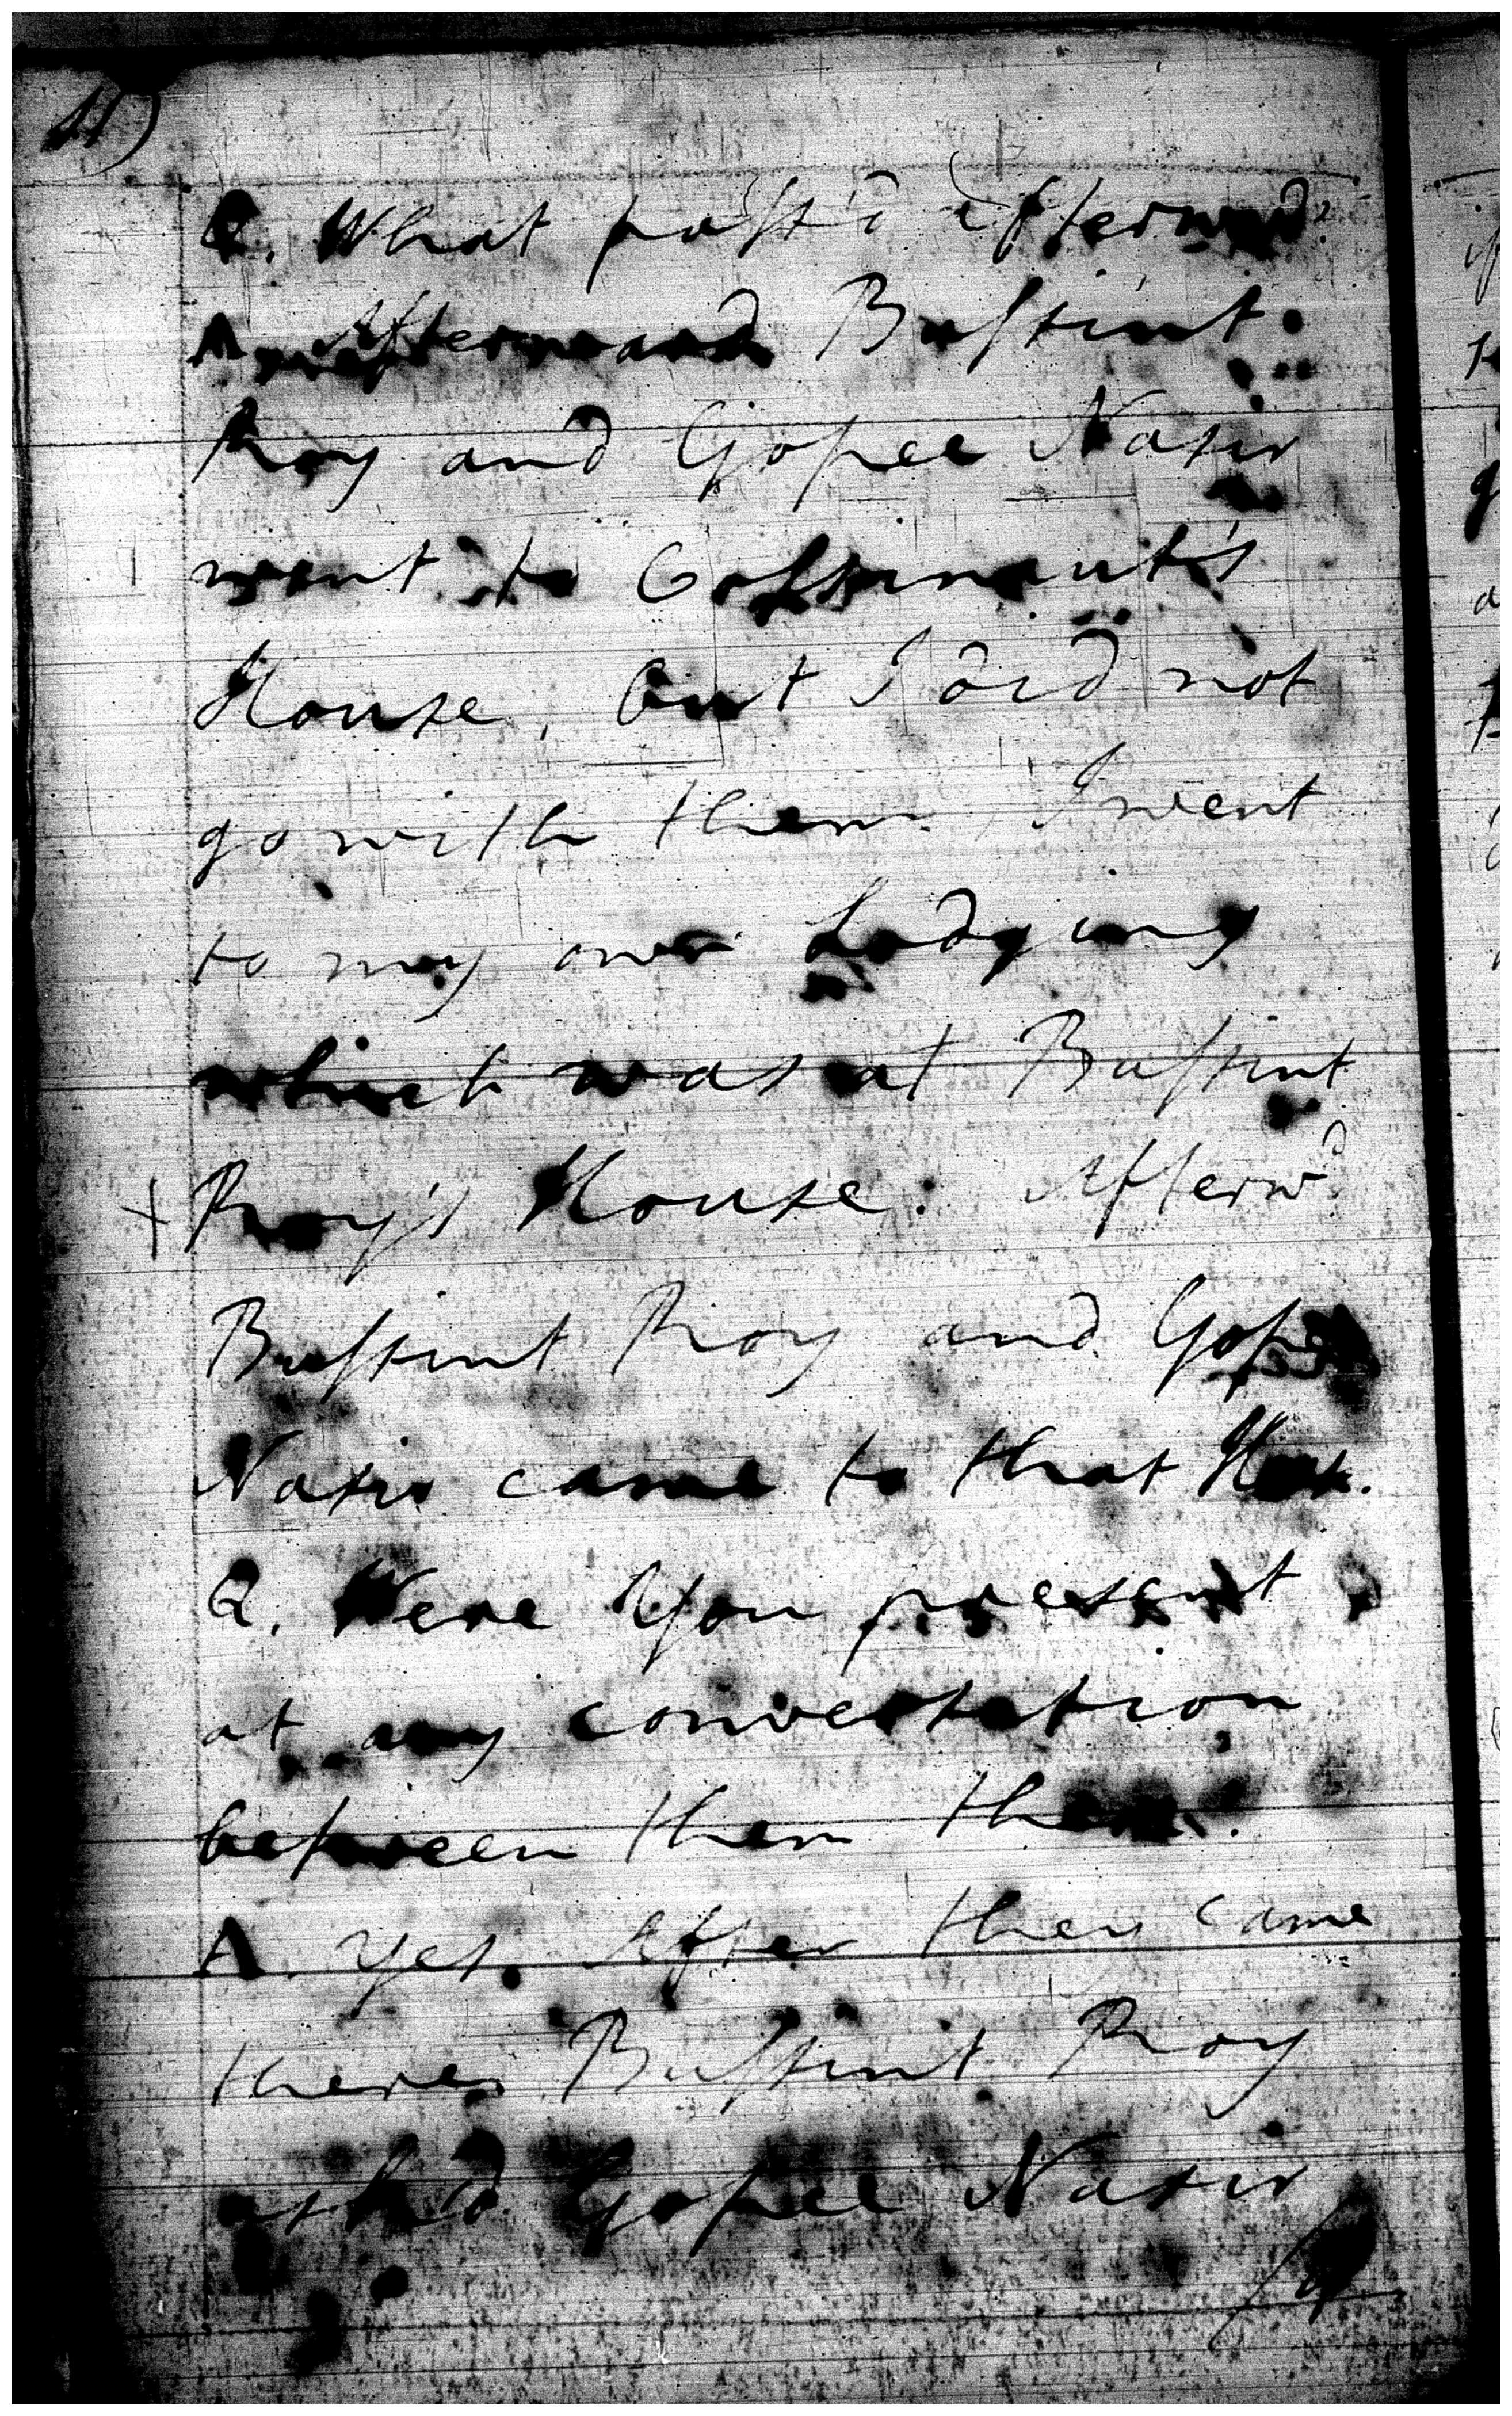 Q. What pass'd afterwards
A. Afterward Bussint
Roy and Gopee Nasir
went to Cossinaut's
House, but I did not
go with them. I went
to my own Lodging
which was at Bussint
Roy's House. Afterwd
Bussint Roy and Gopee
Nasir came to that House.
Q. Were You present
at any conversation
between them there.
A. Yes. After they came
there Bussint Roy
ask'd Gopee Nasir